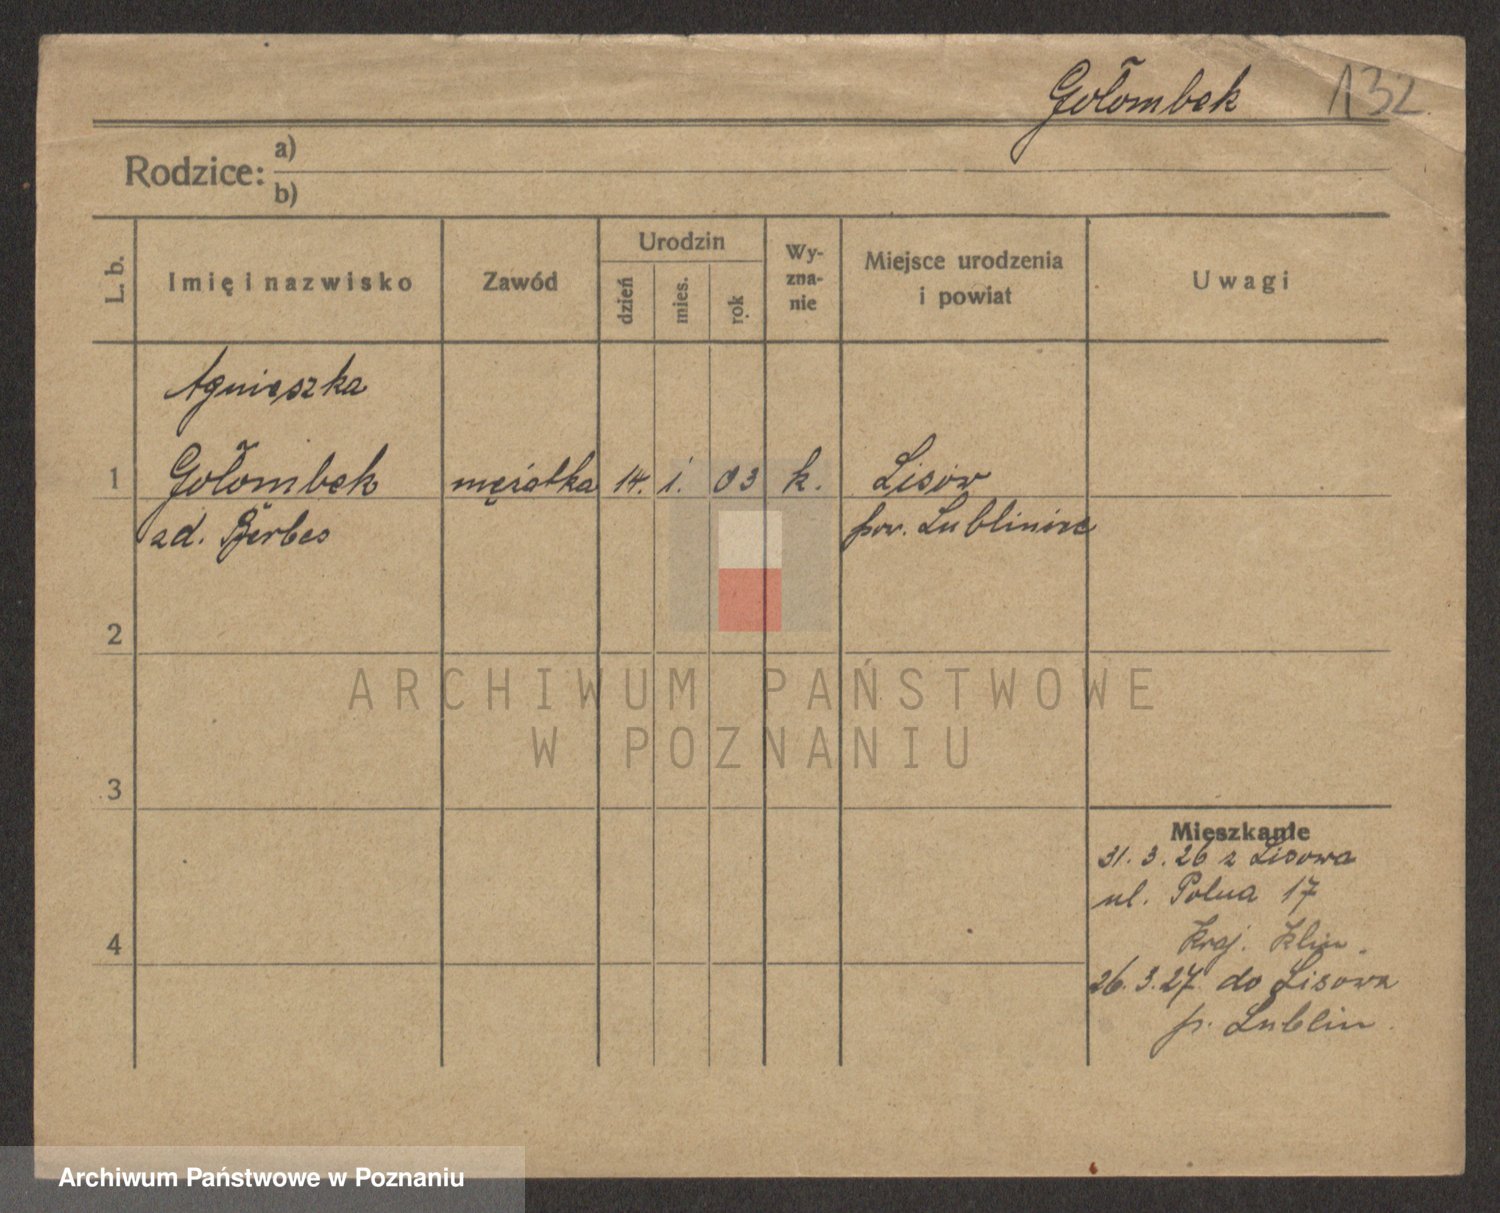 Gołombek 132
Rodzice: a)
b)
L. b.
Imię i nazwisko
Zawód
Urodzin
dzień
mies.
rok
Wy-
zna-
nie
Miejsce urodzenia
i powiat
Uwagi
Agnieszka
1 Gołombek mężatka 14. 1. 03 k. Lisów
pow. Lubliniec
2
3
4
Mieszkanie
31. 3. 26 z Lisowa
ul. Polna 17
26. 3. 27 do Lisowa
p. Lublin.
ARCHIWUM PAŃSTWOWE
W POZNANIU
Archiwum Państwowe w Poznaniu